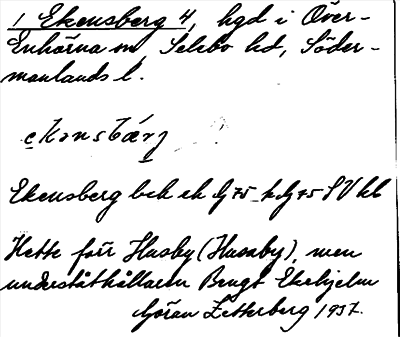 1 Ekensberg 4, hgd i Över-
Enhörna sn, Selebo hd, Söder-
manlands l.
ekənsbárj
Ekensberg bek ek Gj 75
Hette förr Husby (Husaby), men
underståthållaren Bengt Ekehjelm
Göran Zetterberg 1937.